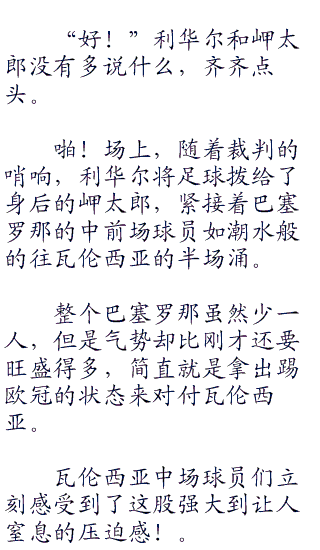 “好！”利华尔和岬太
郎没有多说什么，齐齐点
头。
啪！场上，随着裁判的
哨响，利华尔将足球拨给了
身后的岬太郎，紧接着巴塞
罗那的中前场球员如潮水般
的往瓦伦西亚的半场涌。
整个巴塞罗那虽然少一
人，但是气势却比刚才还要
旺盛得多，简直就是拿出踢
欧冠的状态来对付瓦伦西
亚。
瓦伦西亚中场球员们立
刻感受到了这股强大到让人
窒息的压迫感！。